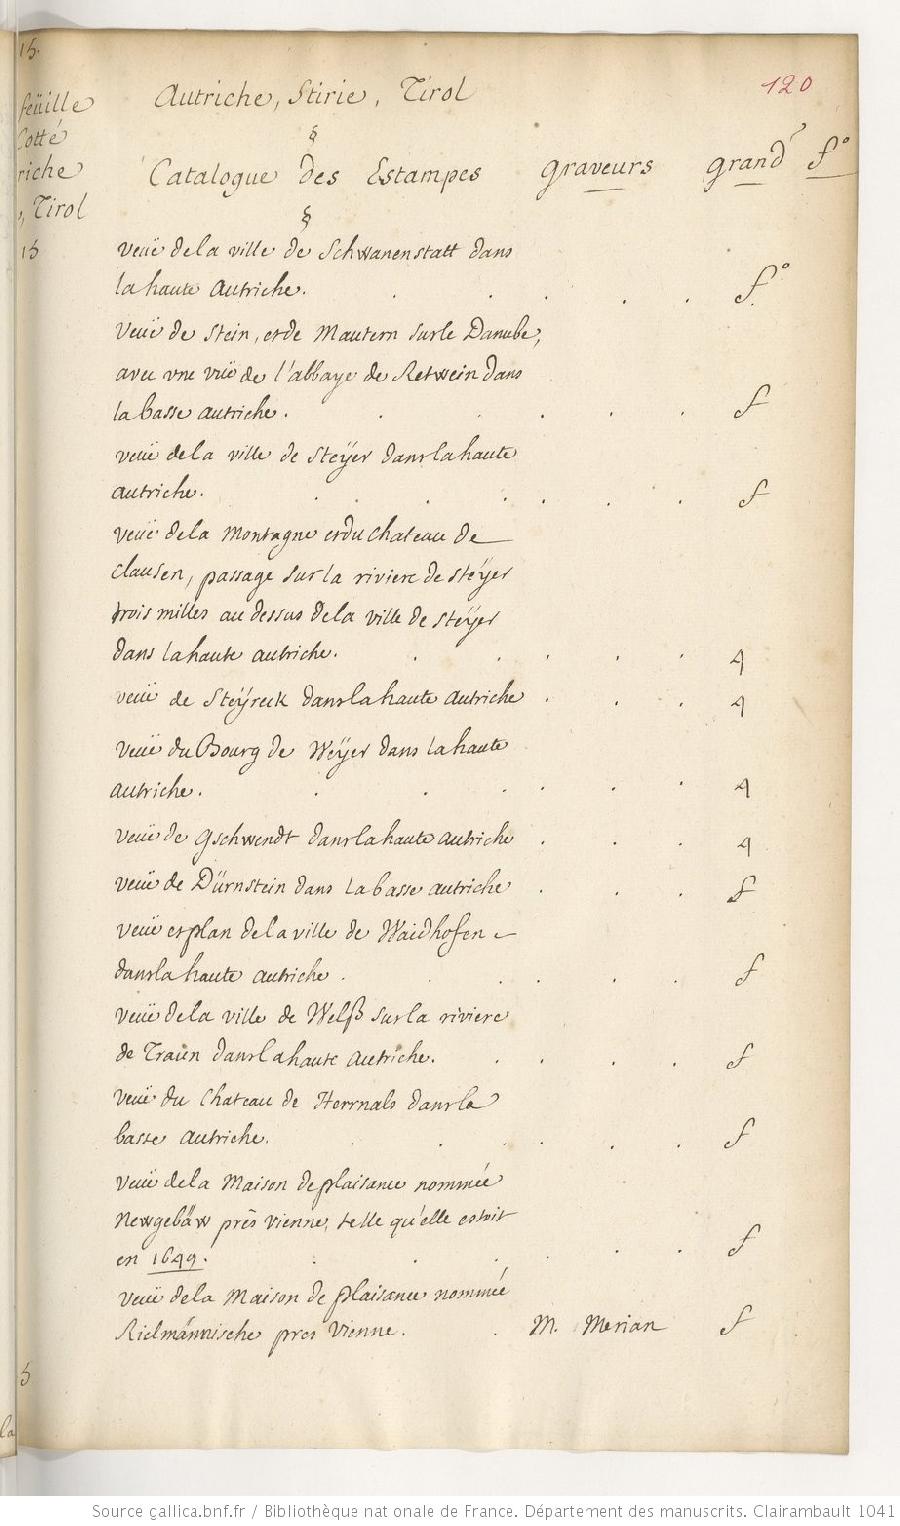 15.
feüille
Cotté
riche
, Tirol
15
Autriche, Stirie, Tirol
120
§
Catalogue des Estampes graveurs grandr f°
§
veüe de la ville de Schwanenstatt dans
la haute Autriche. f°.
Veüe de Stein, et de Mautern sur le Danube,
avec vne vüe de l'abbaye de Retwein dans
la basse autriche. f
veüe de la ville de Steÿer dans la haute
autriche. f
veüe de la Montagne et du chateau de
clausen, passage sur la riviere de steÿer
trois milles au dessus de la ville de steÿer
dans la haute autriche. 4
veüe de Steÿreck dans la haute autriche 4
veüe du Bourg de Weÿer dans la haute
autriche. 4
veüe de Gschwendt dans la haute autriche 4
veüe de Dürnstein dans la basse autriche f
veüe et plan de la ville de Waidhofen
dans la haute autriche. f
veüe de la ville de Welß sur la riviere
de Traün dans la haute autriche. f
veüe du chateau de Herrnals dans la
basse autriche. f
veüe de la Maison de plaisance nommée
Newgebäw près vienne, telle qu'elle estoit
en 1649. f
veüe de la Maison de plaisance nommée
Rielmännische pres vienne. M. Merian f
5
la
Source gallica.bnf.fr / Bibliothèque nationale de France. Département des manuscrits. Clairambault 1041